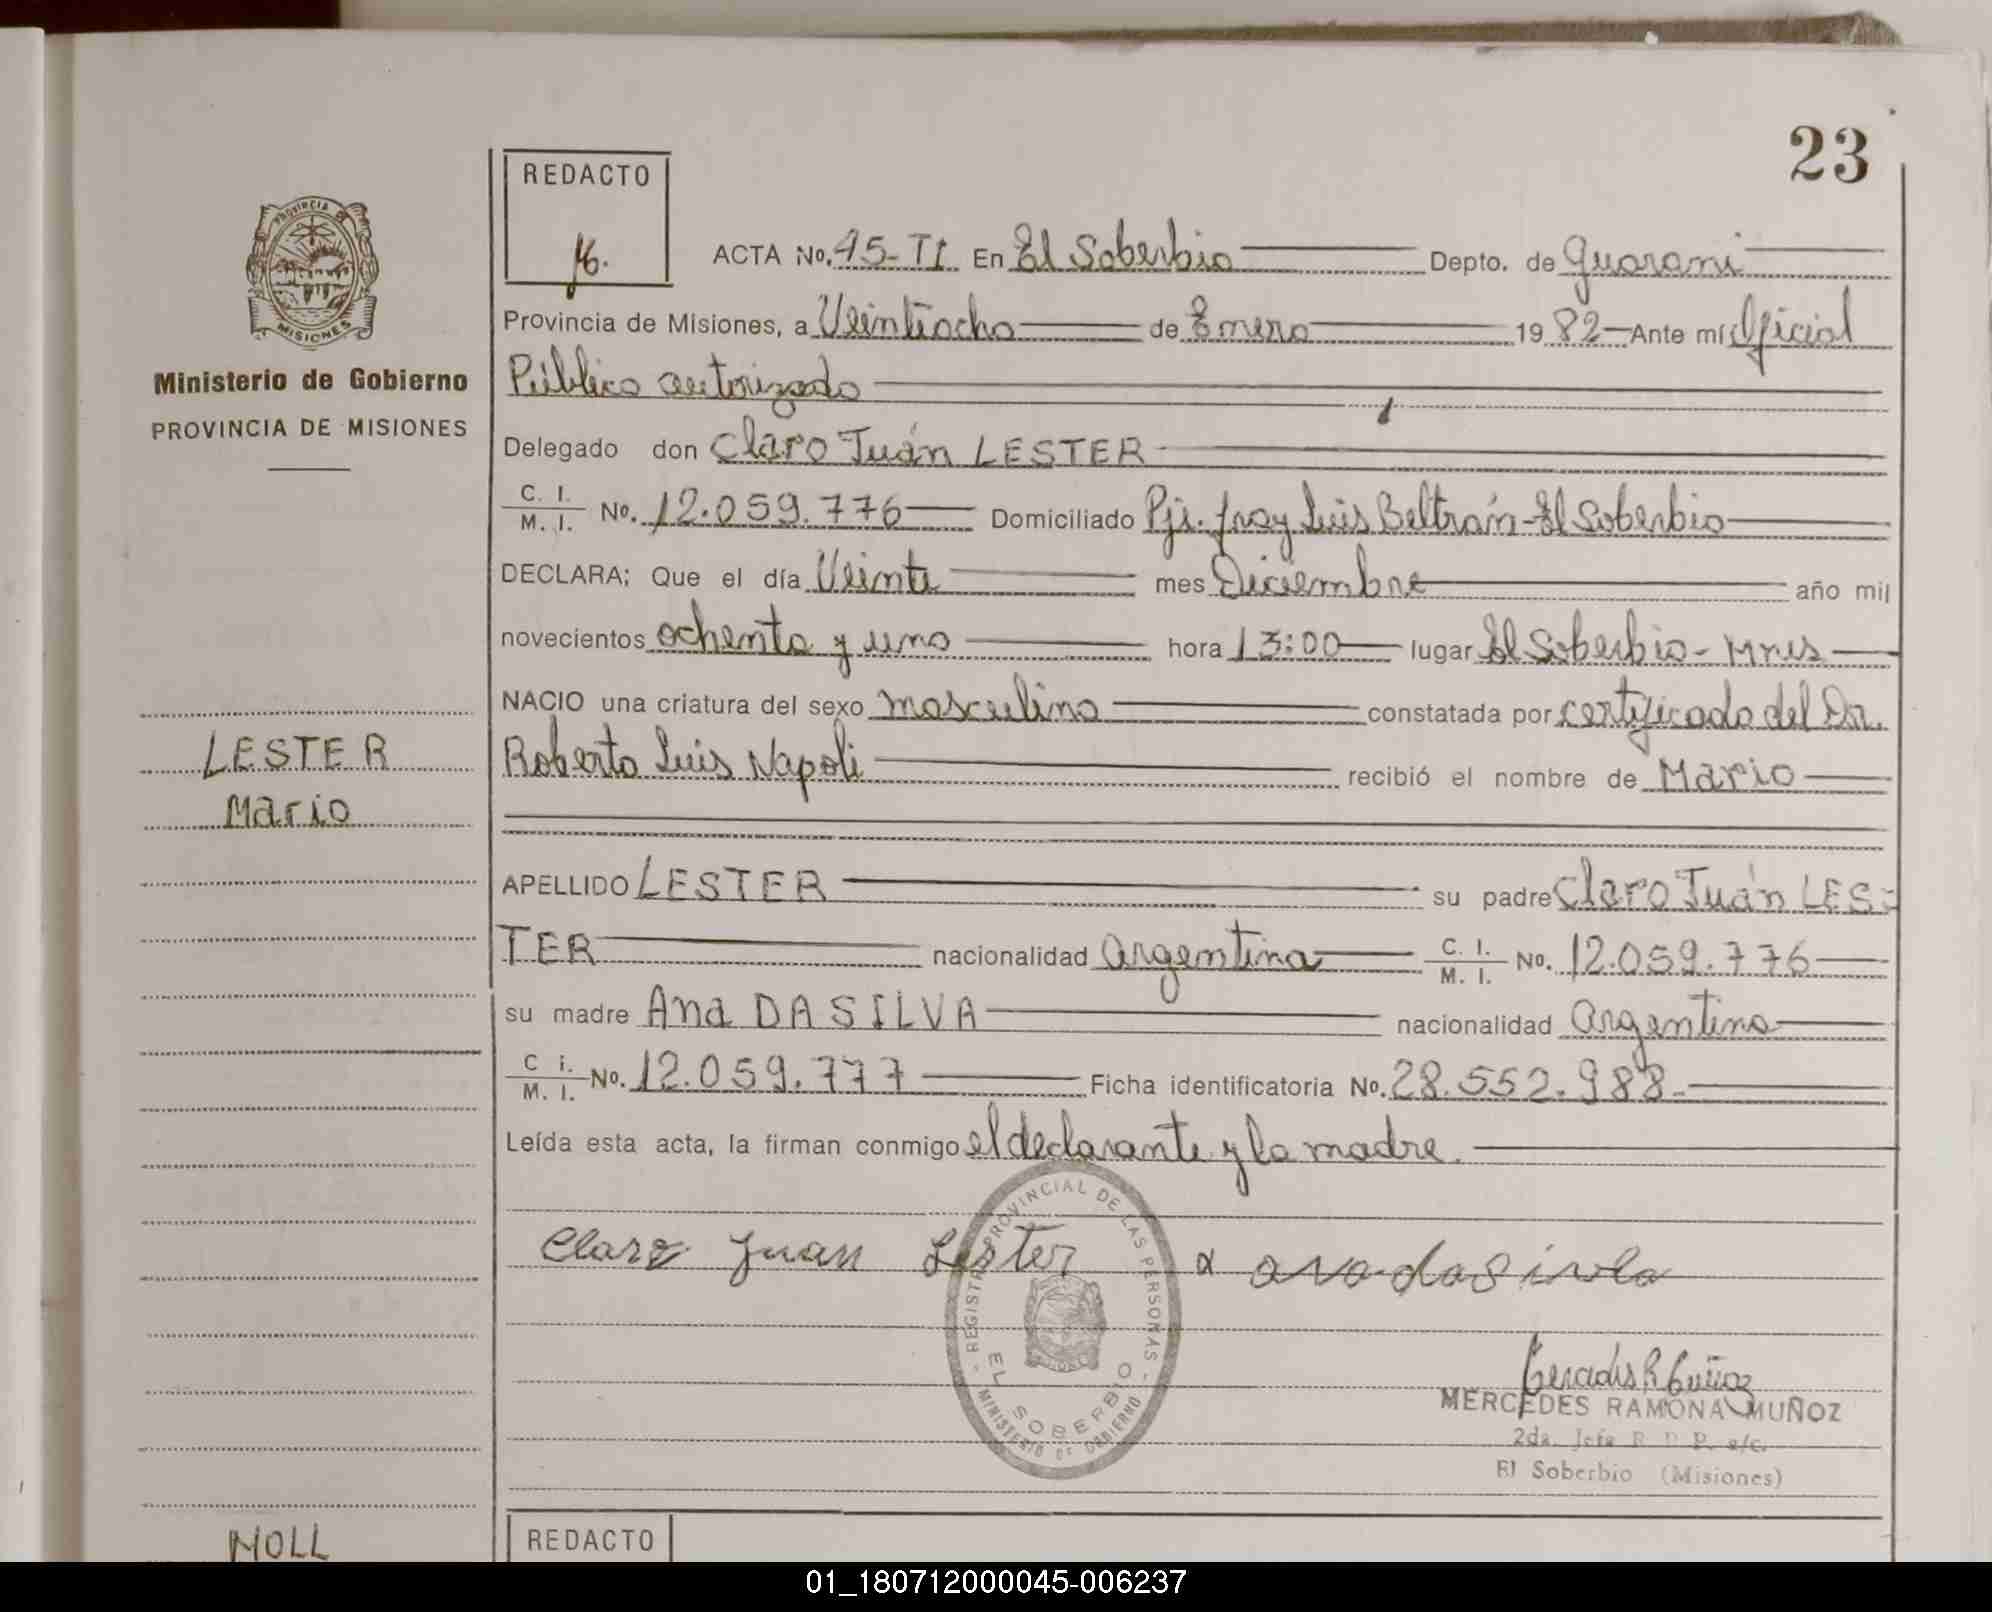 23
REDACTO
PROVINCIA DE
MISIONES
ACTA No. 45-TI En El Soberbio Depto. de Guaraní
Provincia de Misiones, a Veintiocho de Enero 1982 Ante mí Oficial
Ministerio de Gobierno
PROVINCIA DE MISIONES
Público autorizado
Delegado don Claro Juán LESTER
C. I. / M. I. No. 12.059.776 Domiciliado Pje. fray Luis Beltrán-El Soberbio
DECLARA; Que el día Veinte mes Diciembre año mil
novecientos ochenta y uno hora 13:00 lugar El Soberbio - Mnes
NACIO una criatura del sexo masculino constatada por certificado del Dr.
LESTER
Mario
Roberto Luis Napoli recibió el nombre de Mario
APELLIDO LESTER su padre Claro Juán LES-
TER nacionalidad argentina C. I. / M. I. No. 12.059.776
su madre Ana DA SILVA nacionalidad argentina
C i. / M. I. No. 12.059.777 Ficha identificatoria No. 28.552.988.-
Leída esta acta, la firman conmigo el declarante y la madre.
Claro Juan Lester
REGISTRO PROVINCIAL DE LAS PERSONAS
EL SOBERBIO
MINISTERIO DE GOBIERNO
MERCEDES RAMONA MUÑOZ
2da. Jefe R. P. P. a/c.
El Soberbio (Misiones)
MOLL
REDACTO
01_180712000045-006237